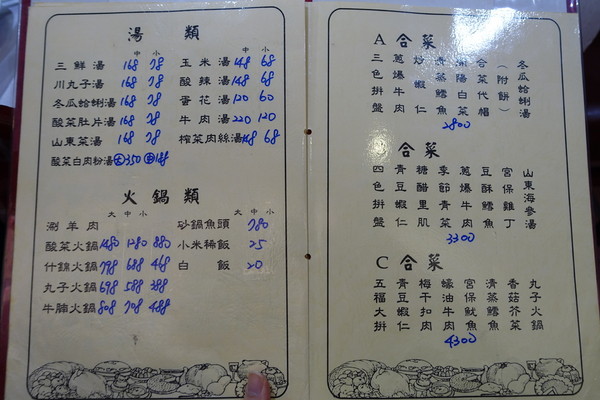 湯 類
中 小
三鮮湯 168 78
川丸子湯 168 78
冬瓜蛤蜊湯 168 78
酸菜肚片湯 168 78
山東菜湯 168 78
酸菜白肉粉湯 大350 中188
中 小
玉米湯 148 68
酸辣湯 148 68
蛋花湯 120 60
牛肉湯 220 120
榨菜肉絲湯 148 68
火鍋類
大 中 小
涮羊肉
酸菜火鍋 1480 1280 880
什錦火鍋 798 688 468
丸子火鍋 698 588 388
牛腩火鍋 808 708 488
大 中 小
砂鍋魚頭 780
小米稀飯 25
白飯 20
A 合菜
三色拼盤
蔥爆牛肉
炒蝦仁
清蒸鱈魚
合菜代帽
(附餅)
冬瓜蛤蜊湯
2800
B 合菜
四色拼盤
青豆蝦仁
糖醋里肌
季節青菜
蔥爆牛肉
豆酥鱈魚
宮保雞丁
山東海參湯
3300
C 合菜
五福大拼
青豆蝦仁
梅干扣肉
蠔油牛肉
宮保魷魚
清蒸鱈魚
香菇芥菜
丸子火鍋
4300